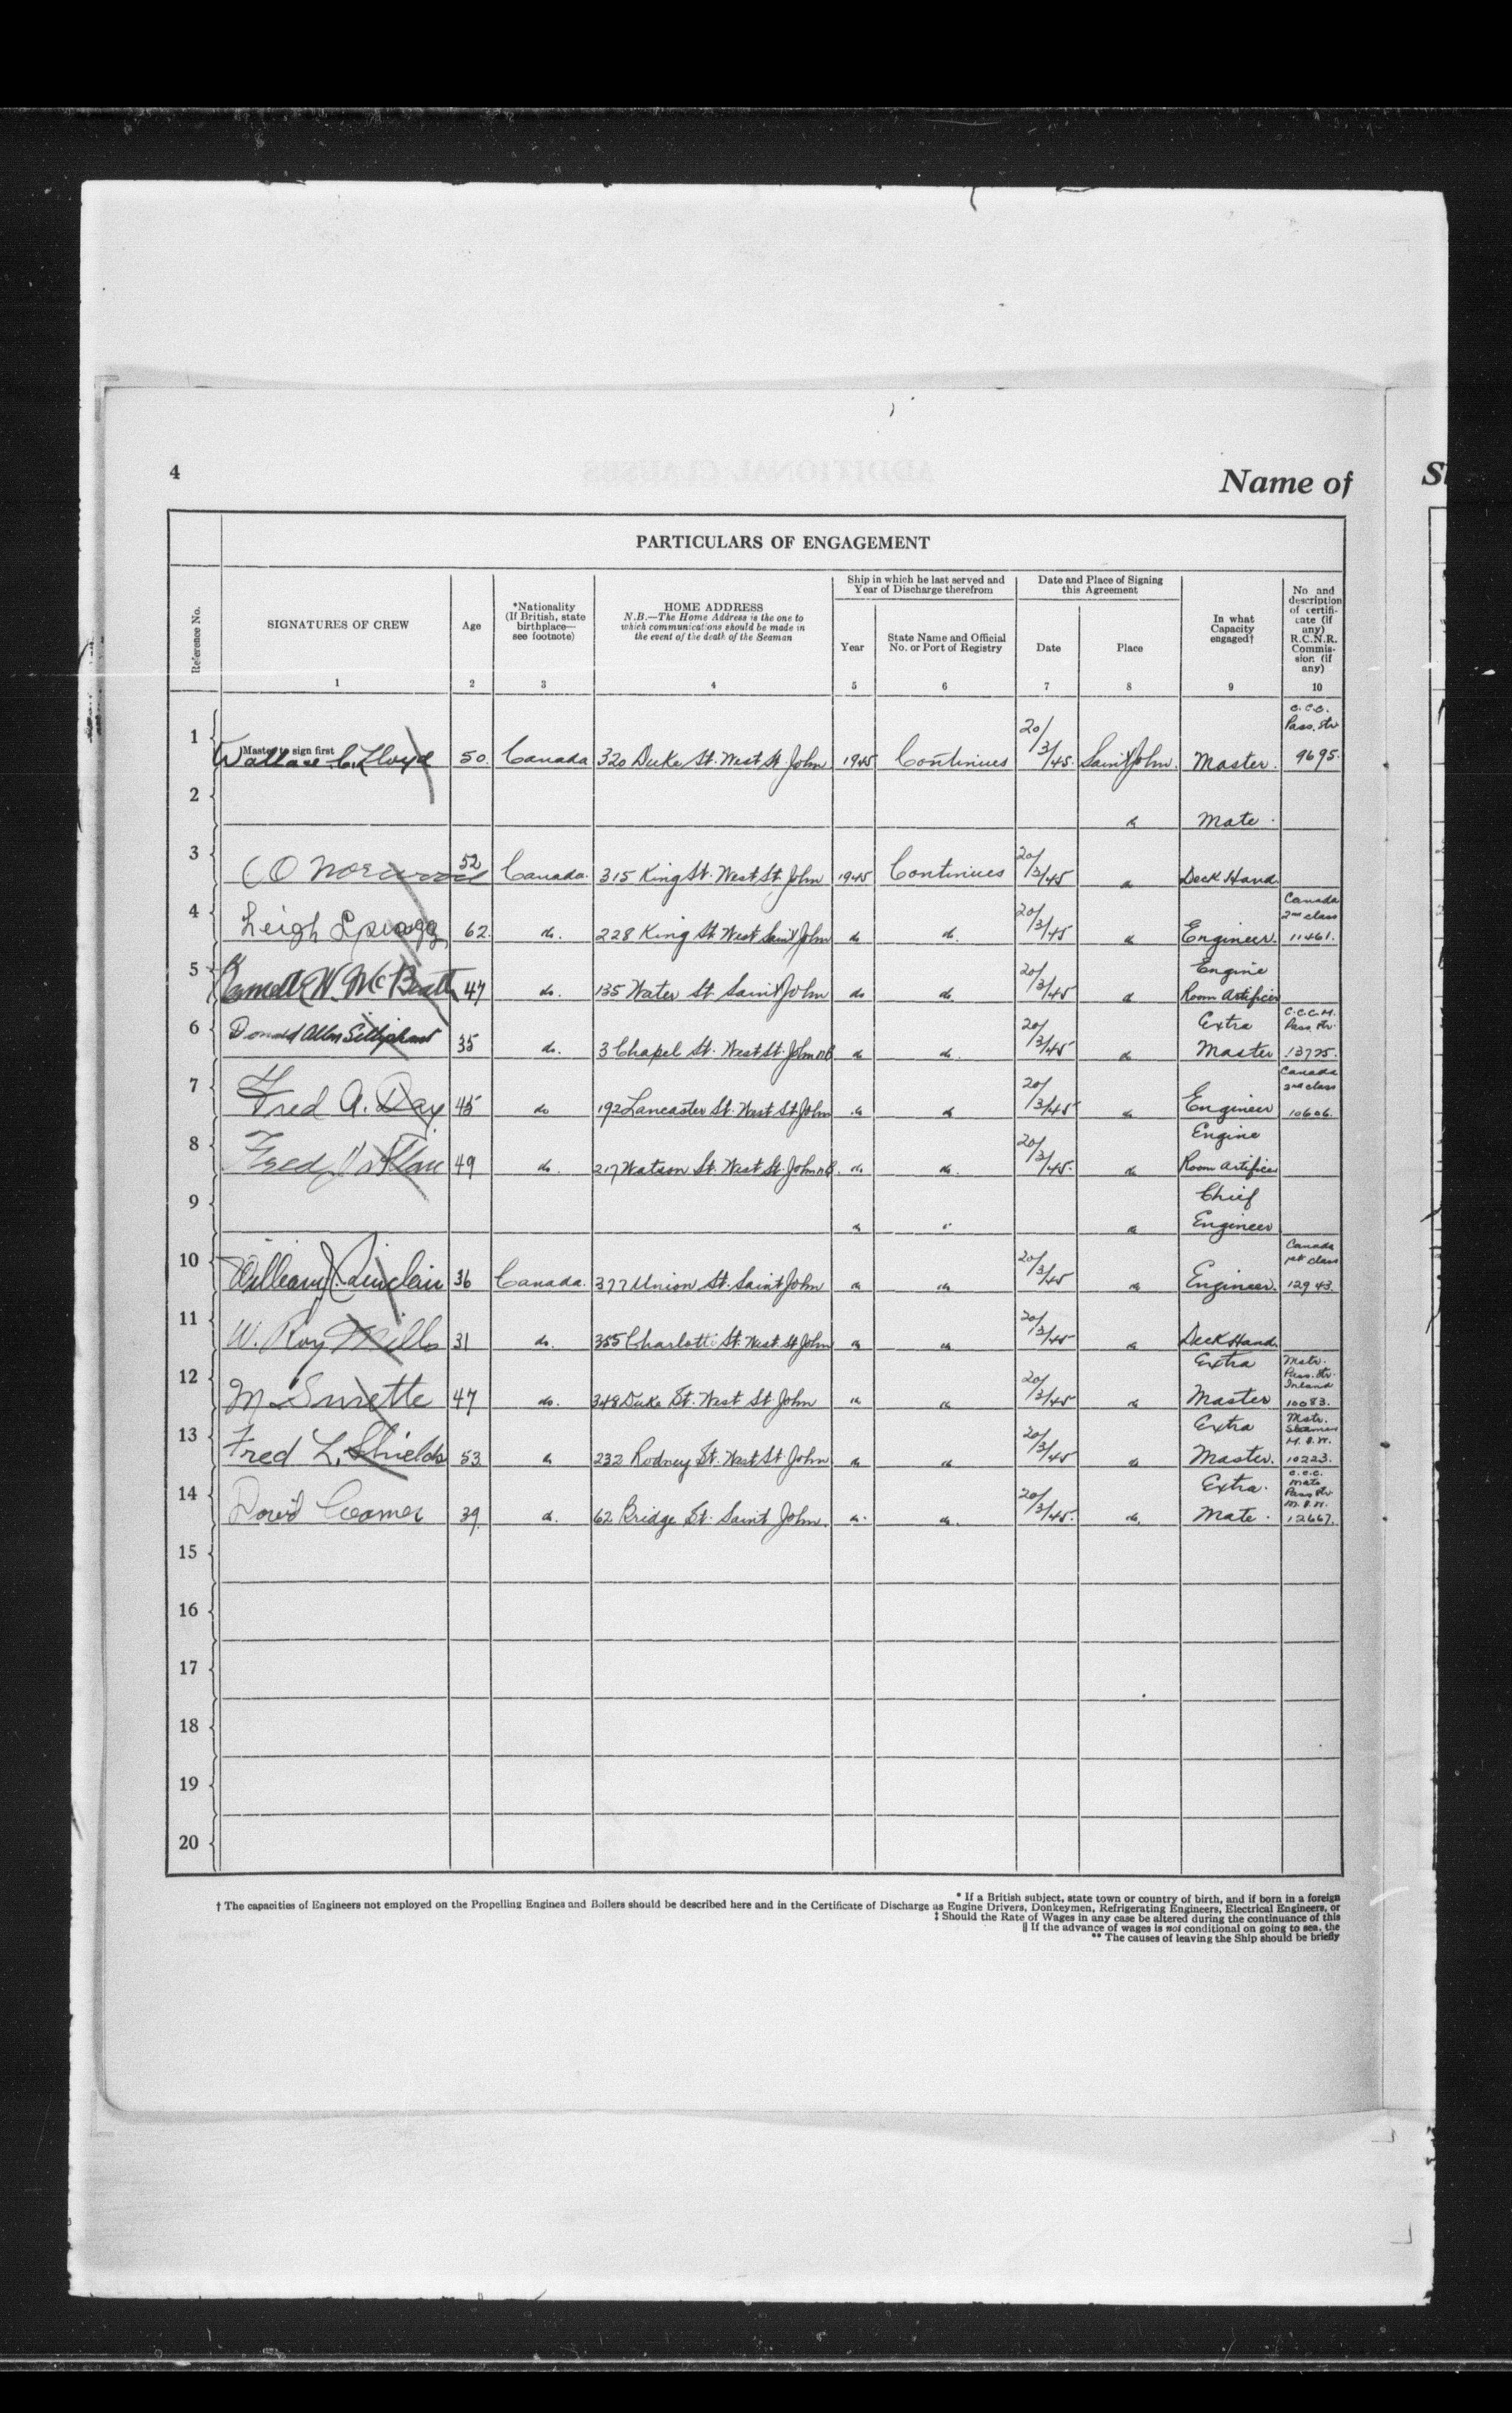 4
Name of
PARTICULARS OF ENGAGEMENT
Reference No.
SIGNATURES OF CREW
1
Age
2
*Nationality
(If British, state
birthplace—
see footnote)
3
HOME ADDRESS
N.B.—The Home Address is the one to
which communications should be made in
the event of the death of the Seaman
4
Ship in which he last served and
Year of Discharge therefrom
Year
5
State Name and Official
No. or Port of Registry
6
Date and Place of Signing
this Agreement
Date
7
Place
8
In what
Capacity
engaged†
9
No and
description
of certifi-
cate (if
any)
R.C.N.R.
Commis-
sion (if
any)
10
1 Master to sign first
Wallace C. Lloyd 50. Canada 320 Duke St. West St. John 1945 Continues 20/3/45. Saint John. Master. C.C.C. Pass. Str. 9695.
2 do Mate.
3 Norwood 52 Canada. 315 King St. West St. John 1945 Continues 20/3/45 do Deck Hand
4 Leigh Spragg 62. do. 228 King St. West Saint John do do. 20/3/45 do Engineer. Canada 2nd class 11461.
5 W. McBeath 47 do. 135 Water St. Saint John do do. 20/3/45 do Engine Room Artificer
6 Donald Allen 35 do. 3 Chapel St. West St. John NB do do. 20/3/45 do Extra Master C.C.C.M. Pass. Str. 13725.
7 Fred A. Day 45 do 192 Lancaster St. West St John do do 20/3/45 do Engineer Canada 2nd class 10606.
8 Fred 49 do. 217 Watson St. West St. John NB. do do. 20/3/45. do Engine Room Artificer
9 do do Chief Engineer
10 William J. Sinclair 36 Canada. 377 Union St. Saint John do do 20/3/45 do Engineer. Canada 1st class 12943.
11 W. Roy Mills 31 do. 355 Charlotte St. West St John do do 20/3/45 do Deck Hand.
12 M Surette 47 do. 348 Duke St. West St John do do 20/3/45 do Extra Master Mstr. Pass. Str. Inland 10083.
13 Fred L. Shields 53 do 232 Rodney St. West St. John do do 20/3/45 do Extra Master. Mstr. Steamer 10223.
14 David Cramer 39 do. 62 Bridge St. Saint John. do. do. 20/3/45. do. Extra. Mate. C.C.C. Mate Pass Str. 12667.
15
16
17
18
19
20
* If a British subject, state town or country of birth, and if born in a foreign
† The capacities of Engineers not employed on the Propelling Engines and Boilers should be described here and in the Certificate of Discharge as Engine Drivers, Donkeymen, Refrigerating Engineers, Electrical Engineers, or
‡ Should the Rate of Wages in any case be altered during the continuance of this
‖ If the advance of wages is not conditional on going to sea, the
** The causes of leaving the Ship should be briefly